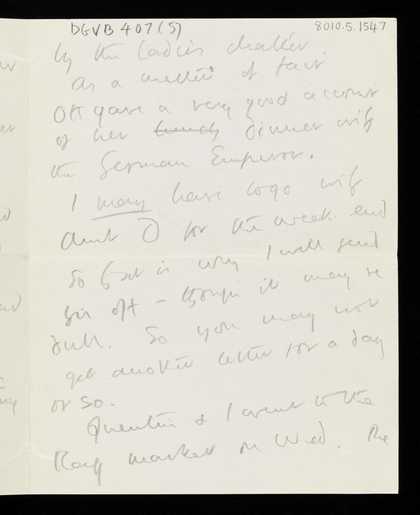 DGVB 407(5)
8010.5.1547
by the ladies chatter.
As a matter of fact
OK gave a very good account
of her lunch dinner with
the German Emperor.
I may have to go with
Aunt O for the week end
so that is why I will send
this off - though it may be
dull. So you may not
get another letter for a day
or so.
Quentin & I went to the
Rag market on Wed. The